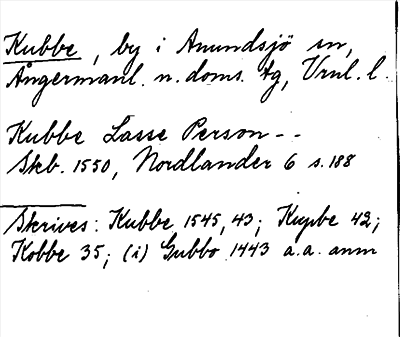 Kubbe, by i Anundsjö sn,
Ångermanl. n. doms. tg, Vrnl. l.
Kubbe Lasse Person - -
Skb. 1550, Nordlander 6 s. 188
Skrives: Kubbe 1545, 43; Kupbe 42;
Kobbe 35; (i) Gubbo 1443 a.a. anm